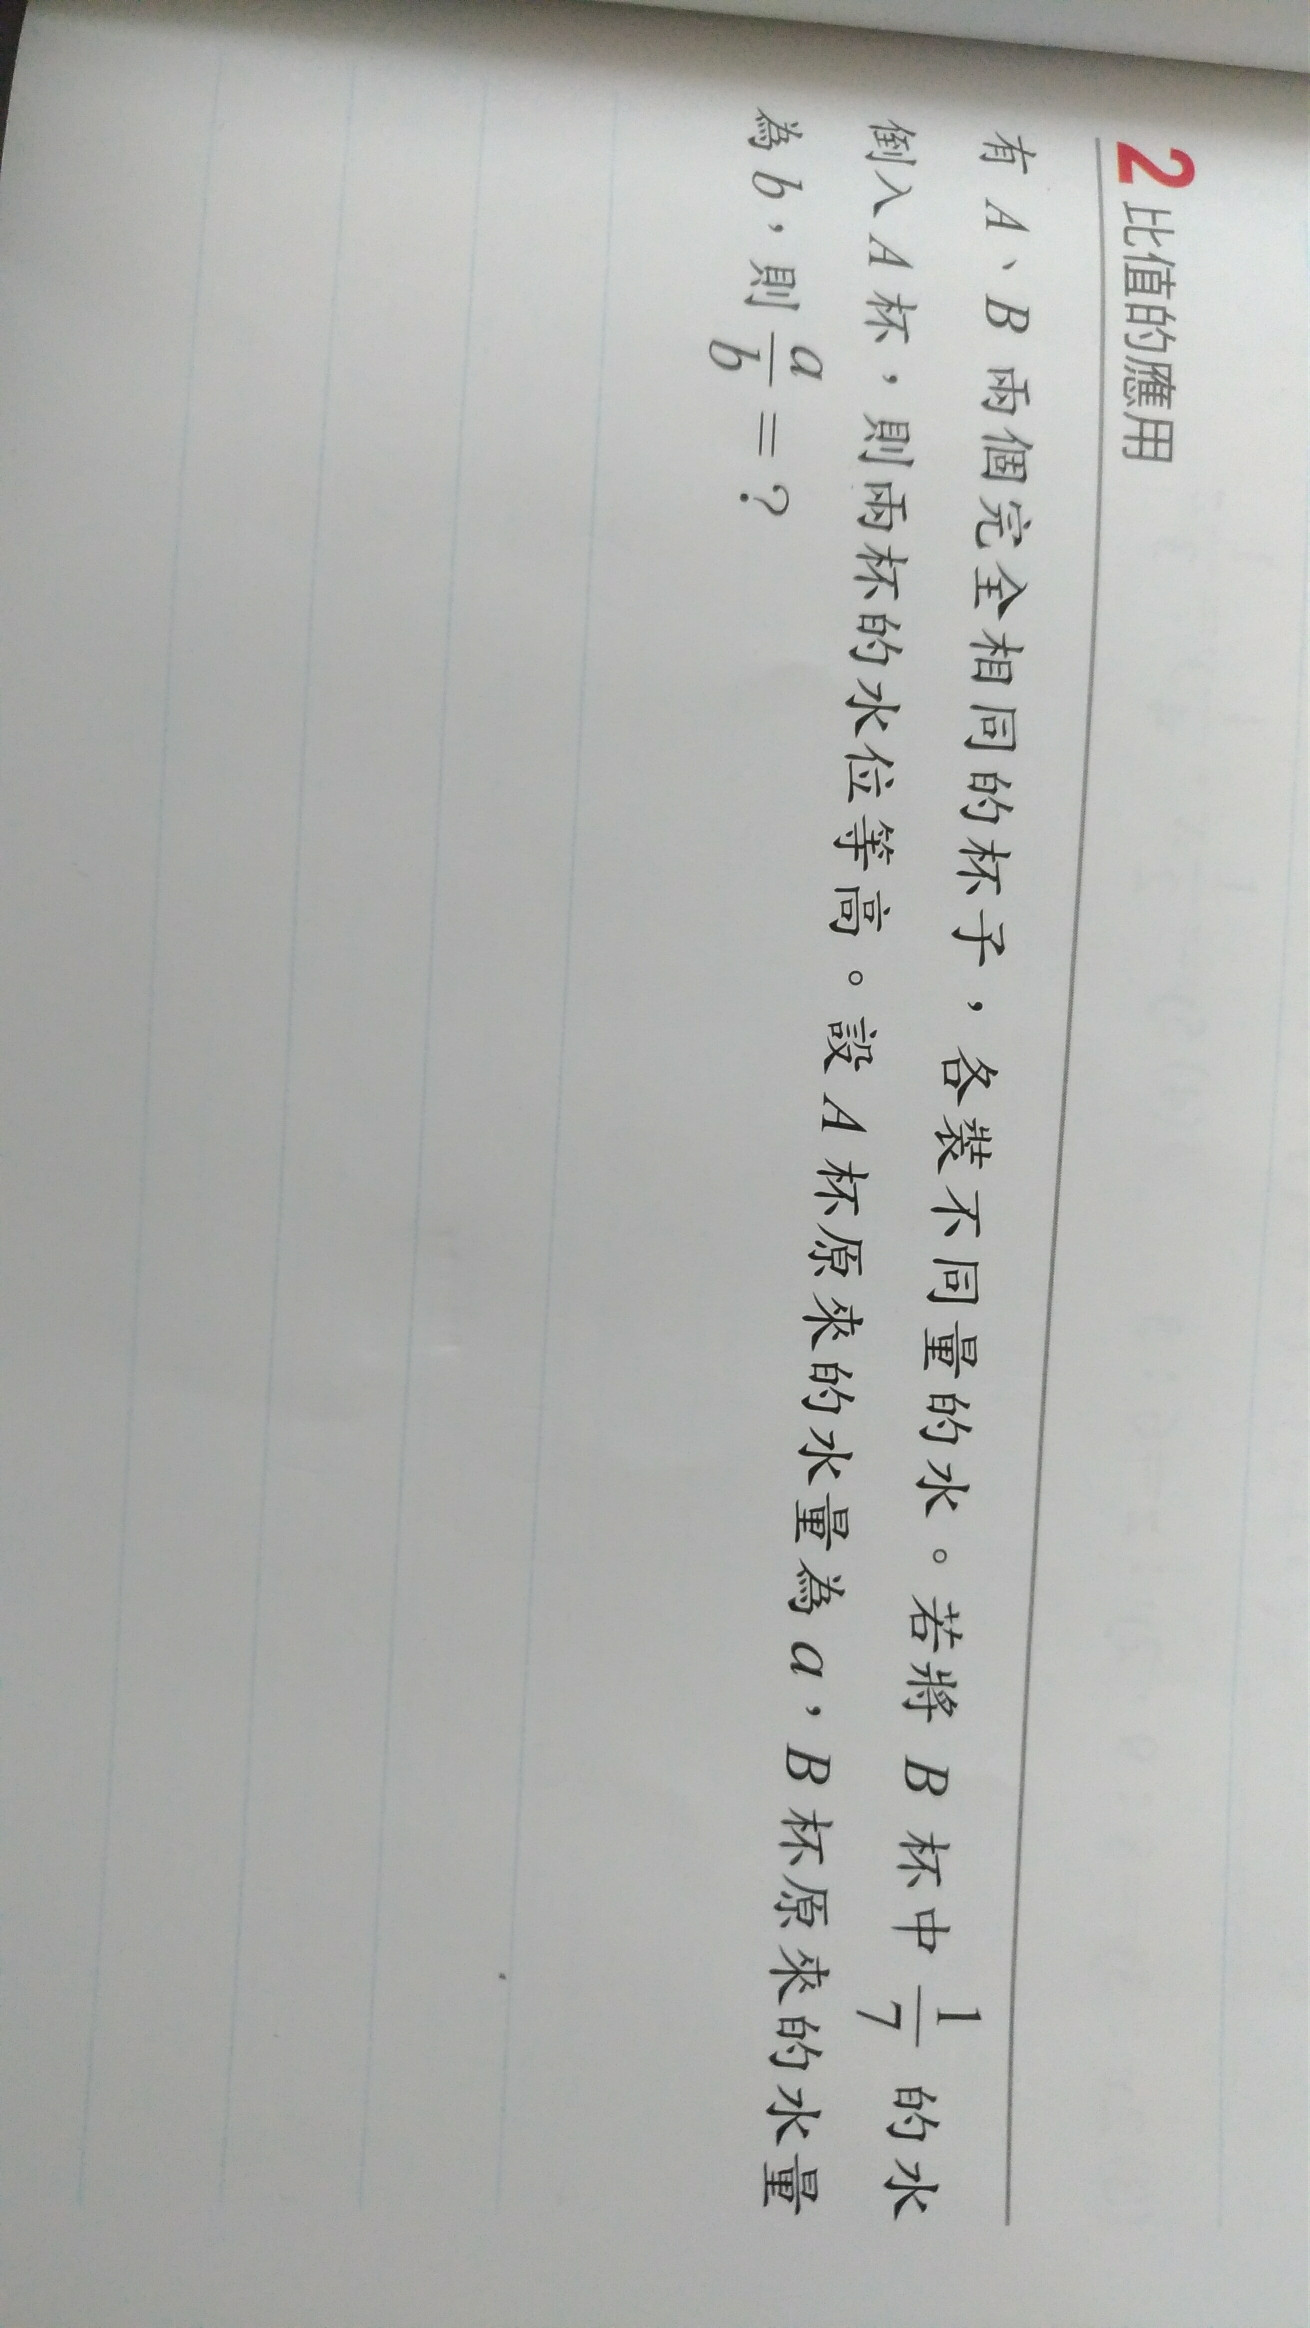 2 比值的應用
有 A、B 兩個完全相同的杯子，各裝不同量的水。若將 B 杯中 1/7 的水
倒入 A 杯，則兩杯的水位等高。設 A 杯原來的水量為 a，B 杯原來的水量
為 b，則 a/b = ?